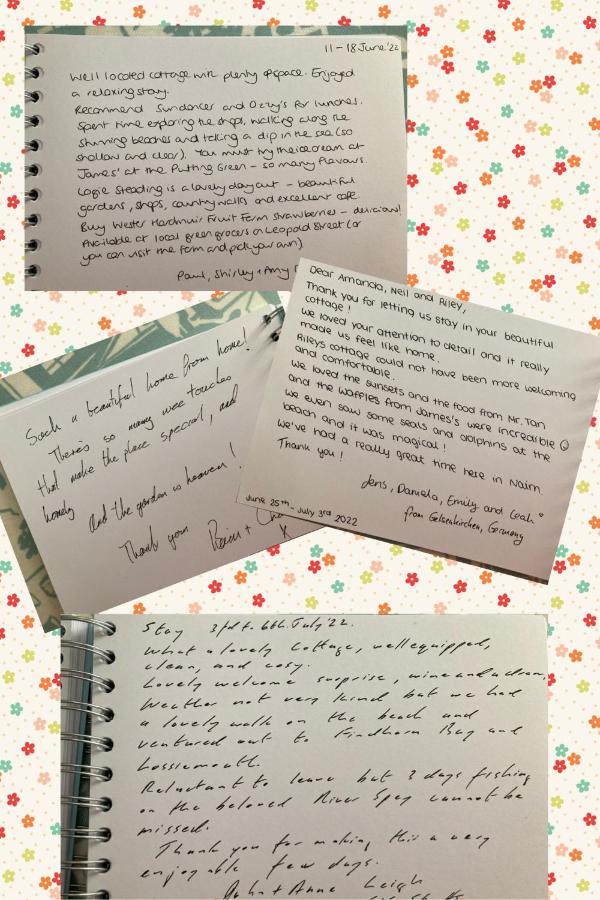 11 - 18 June '22
Well located cottage with plenty of space. Enjoyed
a relaxing stay.
Recommend Sundancer and Ozzy's for lunches.
Spent time exploring the shops, walking along the
stunning beaches and taking a dip in the sea (so
shallow and clear). You must try the icecream at
James' at the Putting Green - so many flavours.
Logie Steading is a lovely day out - beautiful
gardens, shops, country walks and excellent cafe
Buy Wester Hardmuir Fruit Farm Strawberries - delicious!
Available at local green grocers on Leopold Street (or
you can visit the farm and pick your own)
Paul, Shirley + Amy
Such a beautiful home from home!
There's so many wee touches
that make the place special, and
homely
and the garden is heaven!
Thank you
x
Dear Amanda, Neil and Riley,
Thank you for letting us stay in your beautiful
cottage!
We loved your attention to detail and it really
made us feel like home.
Rileys cottage could not have been more welcoming
and comfortable.
We loved the sunsets and the food from Mr. Tan
and the waffles from James's were incredible ☺
We even saw some seals and dolphins at the
beach and it was magical!
We've had a really great time here in Nairn.
Thank you!
Jens, Daniela, Emily and Leah
from Gelsenkirchen, Germany
June 25th - July 3rd 2022
Stay 3rd to 6th July '22.
What a lovely Cottage, well equipped,
clean, and cosy.
Lovely welcome surprise, wine and a dram,
Weather not very kind but we had
a lovely walk on the beach and
ventured out to Findhorn Bay and
Lossiemouth.
Reluctant to leave but 3 days fishing
on the beloved River Spey cannot be
missed.
Thank you for making this a very
enjoyable few days.
John + Anne Leigh